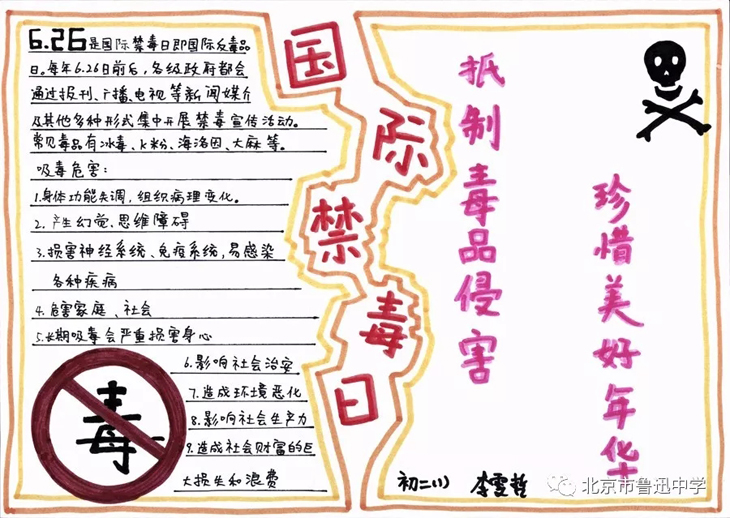 6.26是国际禁毒日即国际反毒品
日。每年6.26日前后,各级政府都会
通过报刊、广播、电视等新闻媒介
及其他多种形式集中开展禁毒宣传活动。
常见毒品有冰毒、K粉、海洛因、大麻等。
吸毒危害:
1.身体功能失调,组织病理变化。
2.产生幻觉.思维障碍
3.损害神经系统、免疫系统,易感染
各种疾病
4.危害家庭、社会
5.长期吸毒会严重损害身心
6.影响社会治安
7.造成环境恶化
8.影响社会生产力
9.造成社会财富的巨
大损失和浪费
毒
国际禁毒日
抵制毒品侵害
珍惜美好年华
初二(1) 李雯哲
北京市鲁迅中学